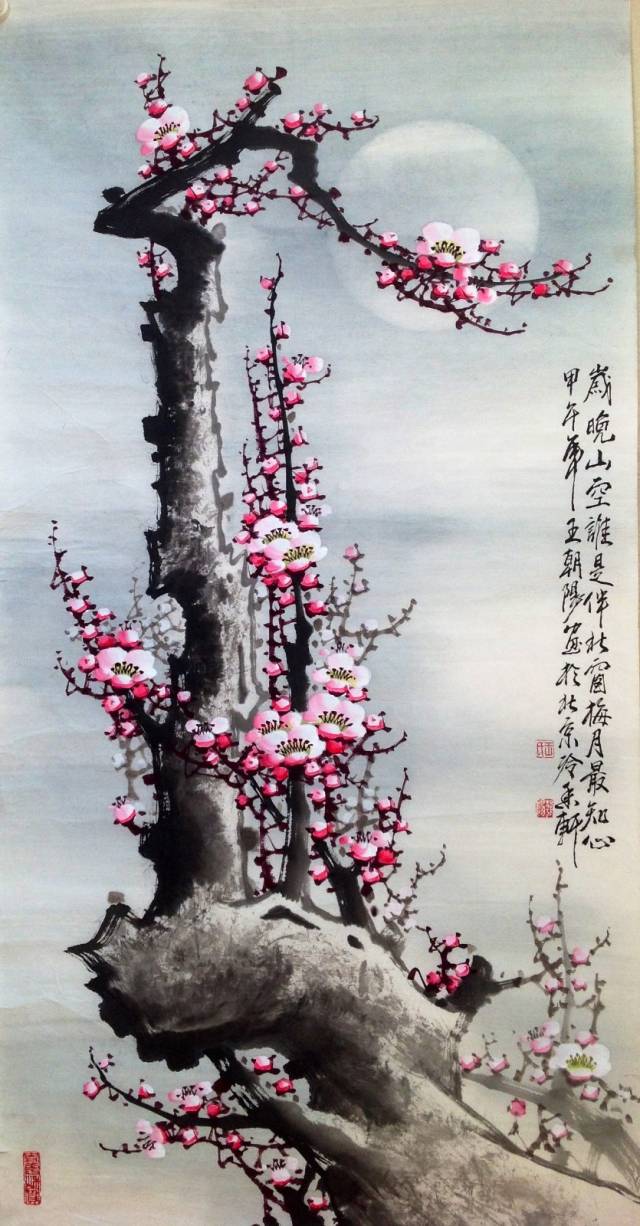 歲晚山空誰是伴北窗梅月最知心
甲午年王朝陽畫於北京冷香軒